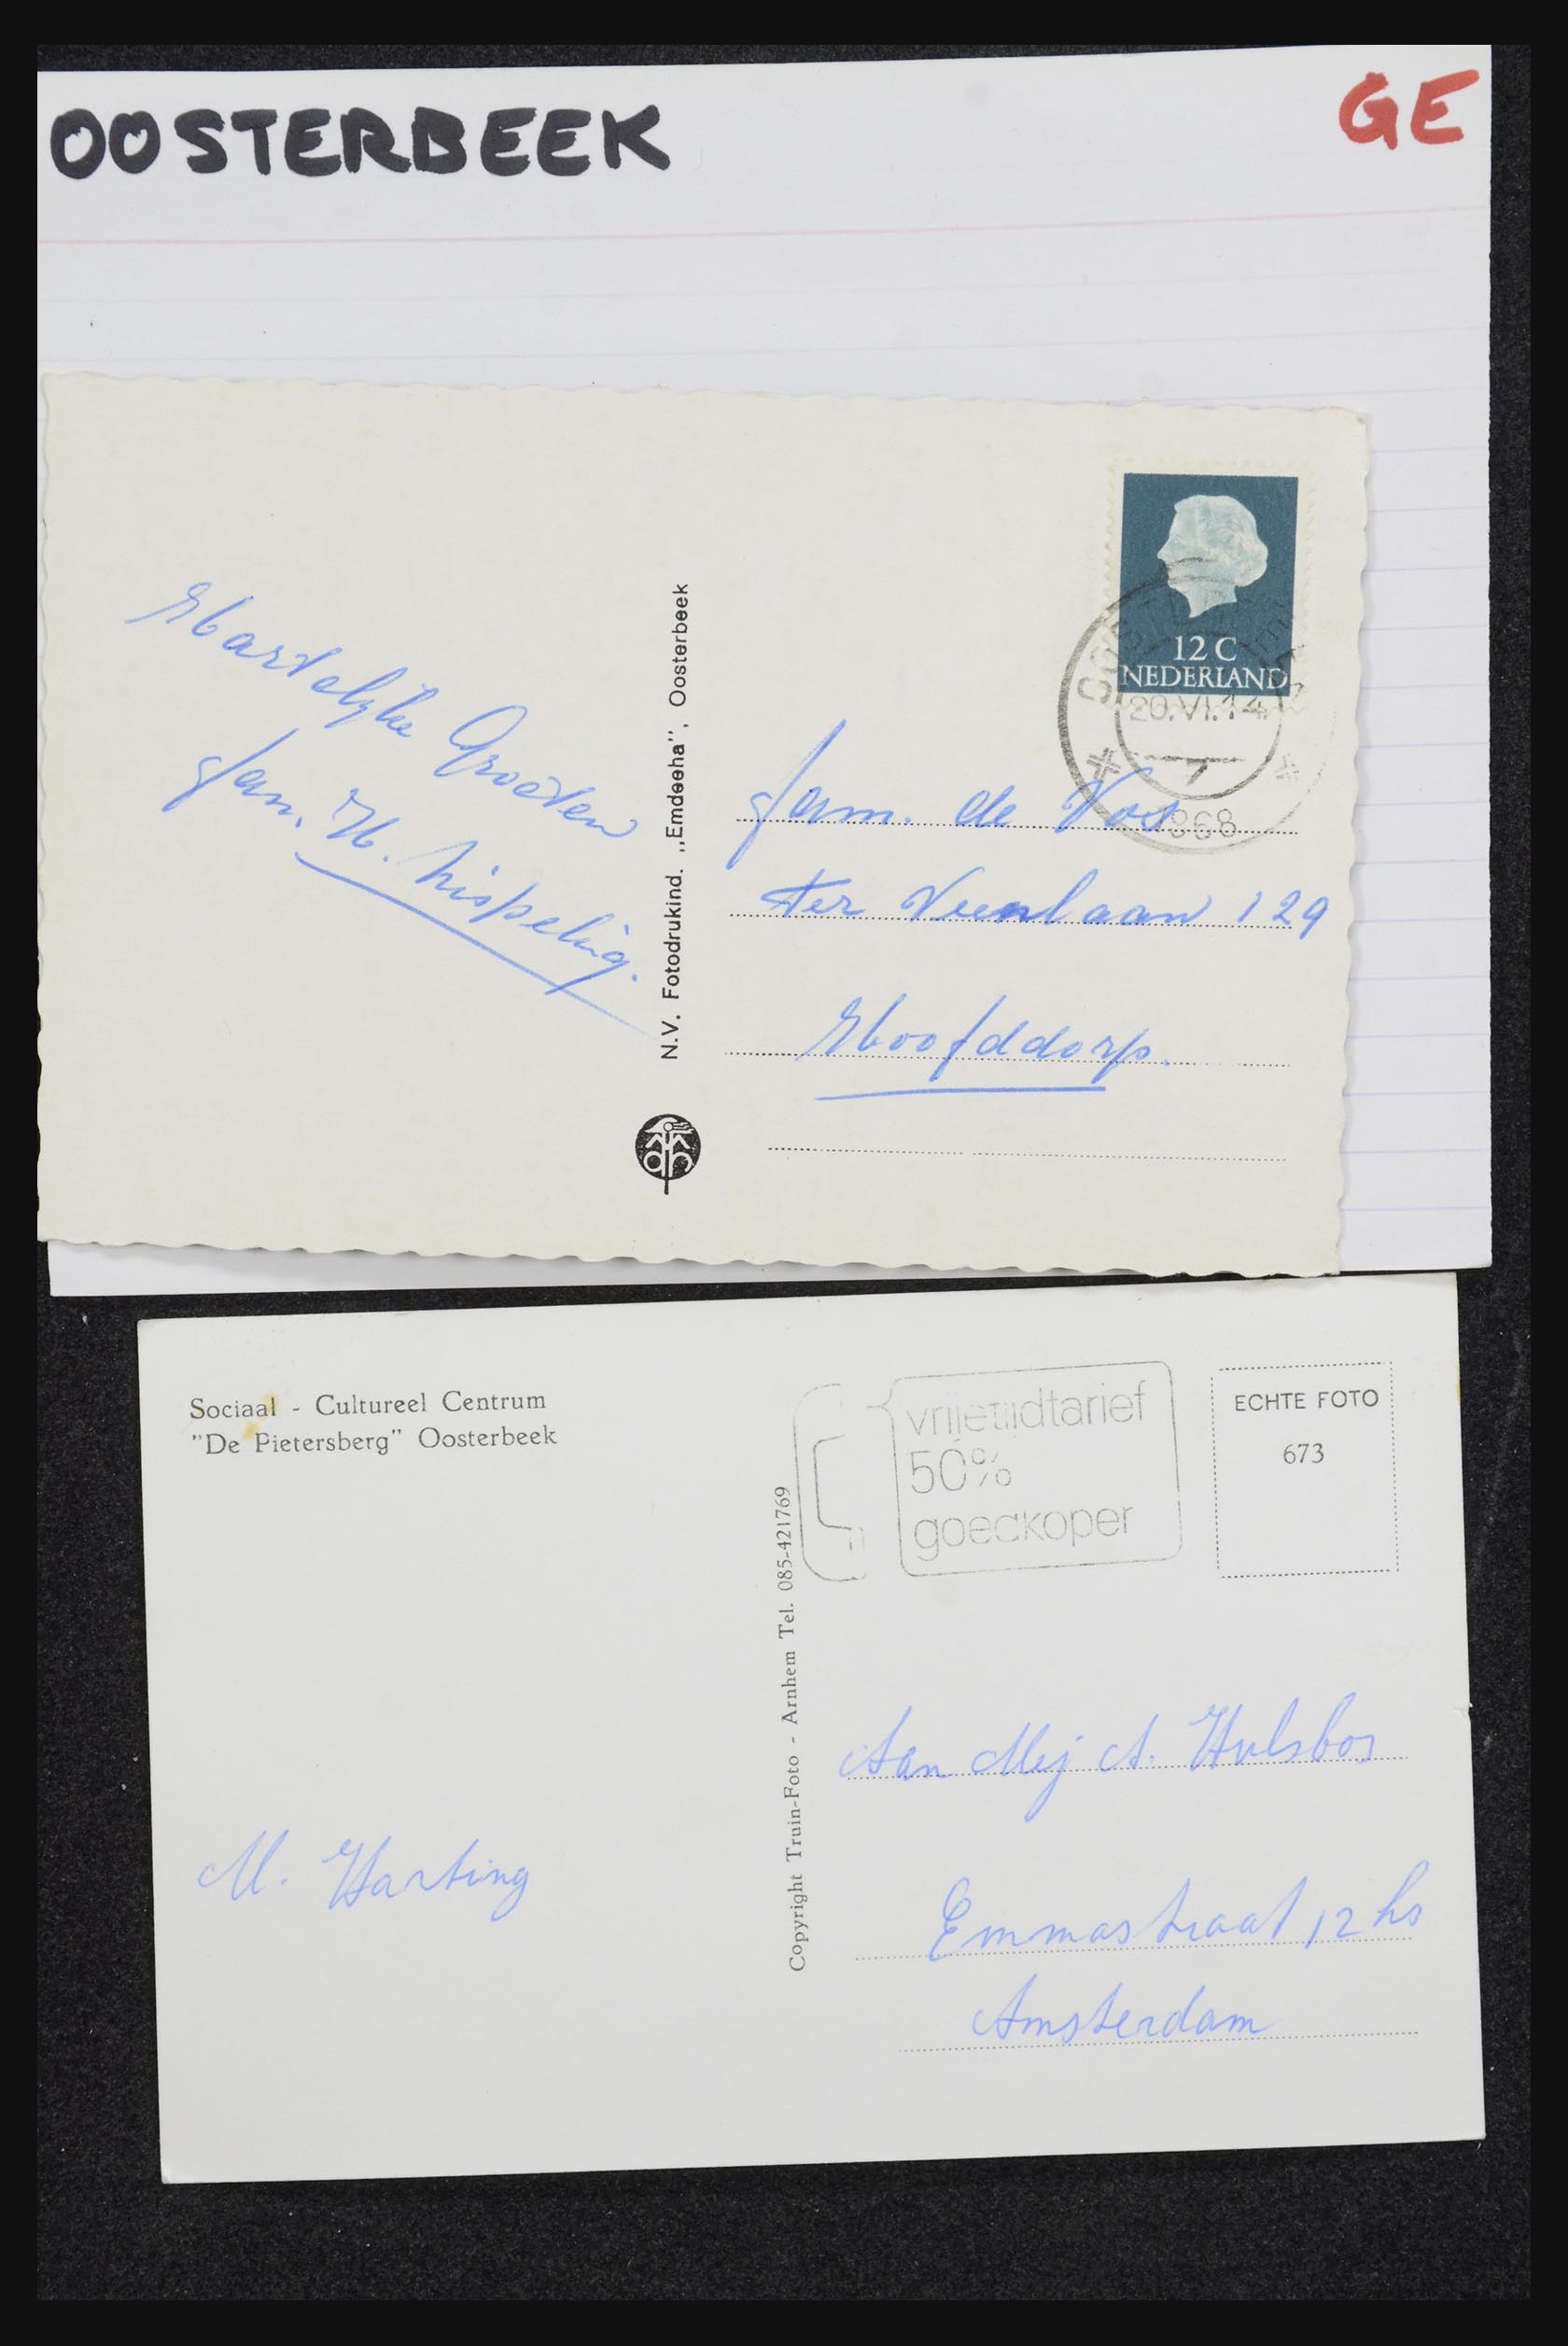 OOSTERBEEK
GE
12 C
NEDERLAND
20.VI.14
1968
Hartelijke Groeten
fam. H.
N.V. Fotodrukind. „Emdeeha”, Oosterbeek
fam. de Vos
ter Veenlaan 129
Hoofddorp.
Sociaal - Cultureel Centrum
"De Pietersberg" Oosterbeek
vrijetijdtarief
50%
goedkoper
ECHTE FOTO
673
Copyright Truin-Foto - Arnhem Tel. 085-421769
M. Harting
Aan Mej A. Hulsbos
Emmastraat 12 hs
Amsterdam